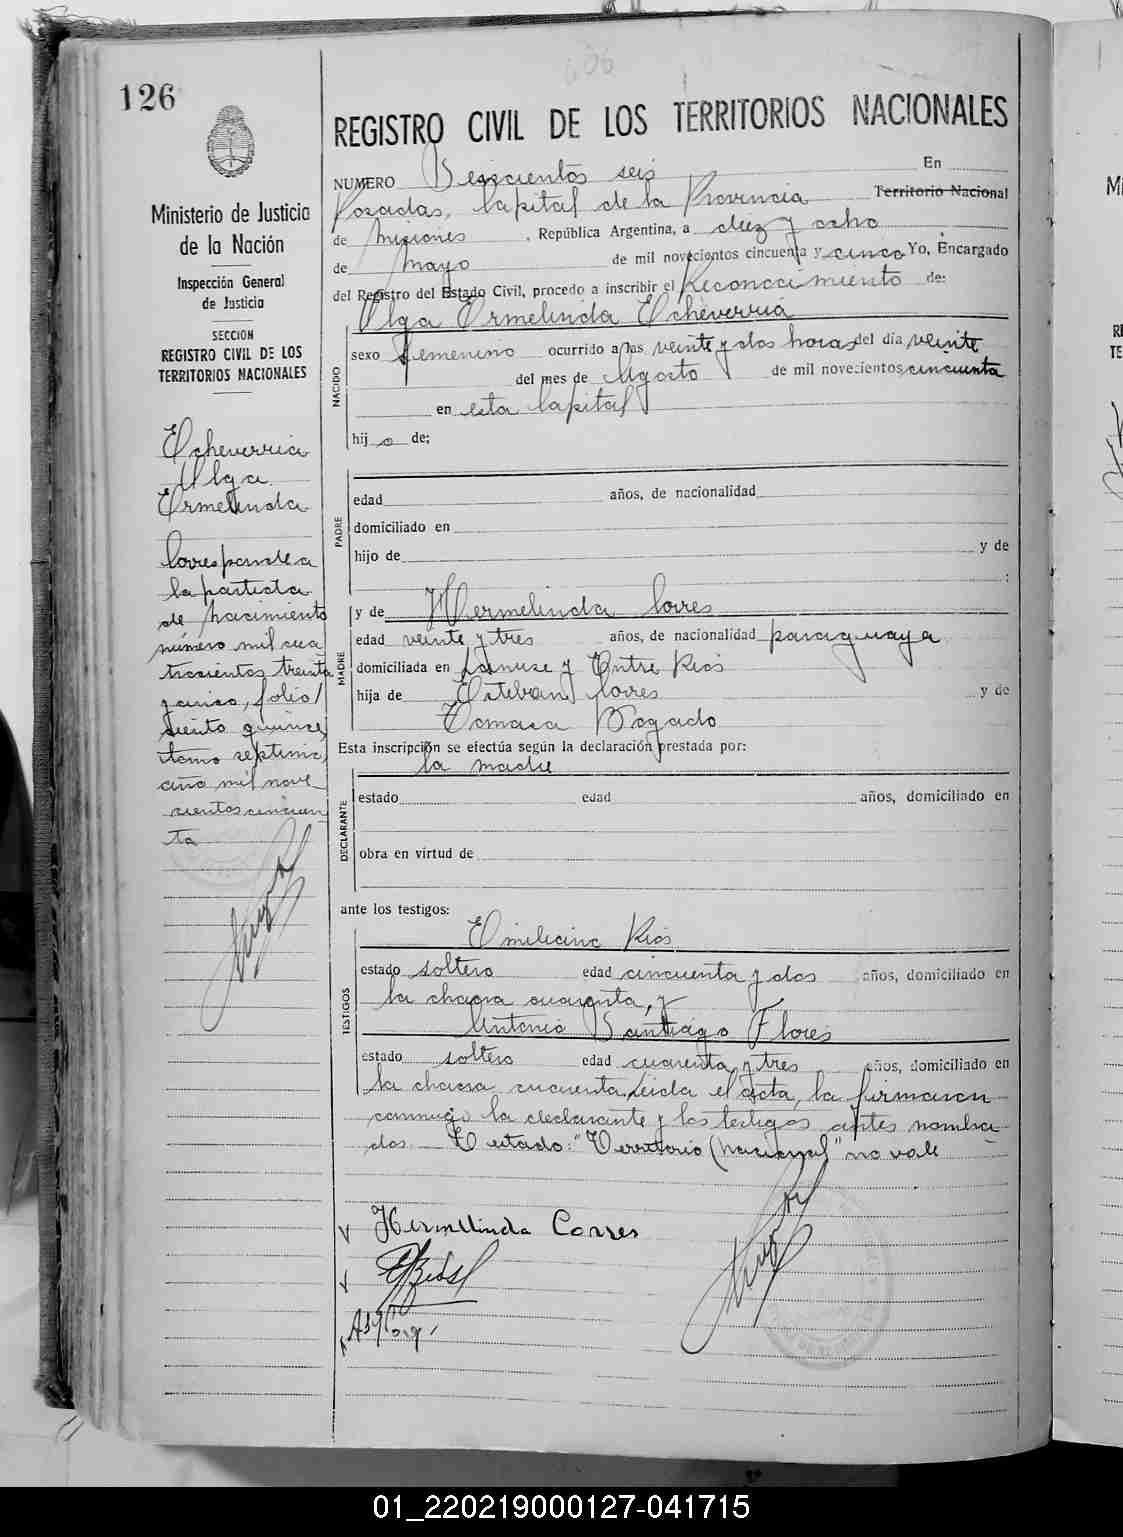 606
126
REGISTRO CIVIL DE LOS TERRITORIOS NACIONALES
NUMERO Seiscientos seis En
Posadas, Capital de la Provincia Territorio Nacional
de Misiones, República Argentina, a diez y ocho
de mayo de mil novecientos cincuenta y cinco Yo, Encargado
del Registro del Estado Civil, procedo a inscribir el Reconocimiento de:
Olga Ermelinda Echeverria
NACIDO
sexo femenino ocurrido a las veinte y dos horas del día veinte
del mes de Agosto de mil novecientos cincuenta
en esta Capital
hij a de:
PADRE
edad años, de nacionalidad
domiciliado en
hijo de y de
:
MADRE
y de Hermelinda Corres
edad veinte y tres años, de nacionalidad paraguaya
domiciliada en Lanuse y Entre Rios
hija de Esteban Corres y de
Tomasa Bogado
Esta inscripción se efectúa según la declaración prestada por:
la madre
DECLARANTE
estado edad años, domiciliado en
obra en virtud de
ante los testigos:
TESTIGOS
Emiliano Rios
estado soltero edad cincuenta y dos años, domiciliado en
la chacra cuarenta, y
Antonio Santiago Flores
estado soltero edad cuarenta y tres años, domiciliado en
la chacra cuarenta. Leida el acta, la firmaron
conmigo la declarante y los testigos antes nombra-
dos. Testado: "Territorio Nacional" no vale
Hermelinda Corres
Ministerio de Justicia
de la Nación
Inspección General
de Justicia
SECCION
REGISTRO CIVIL DE LOS
TERRITORIOS NACIONALES
Echeverria
Olga
Ermelinda
Corresponde a
la partida
de nacimiento
número mil cua
trocientos treinta
y cinco, folio
ciento quince,
tomo septimo,
año mil nove
cientos cincuen
ta
01_220219000127-041715